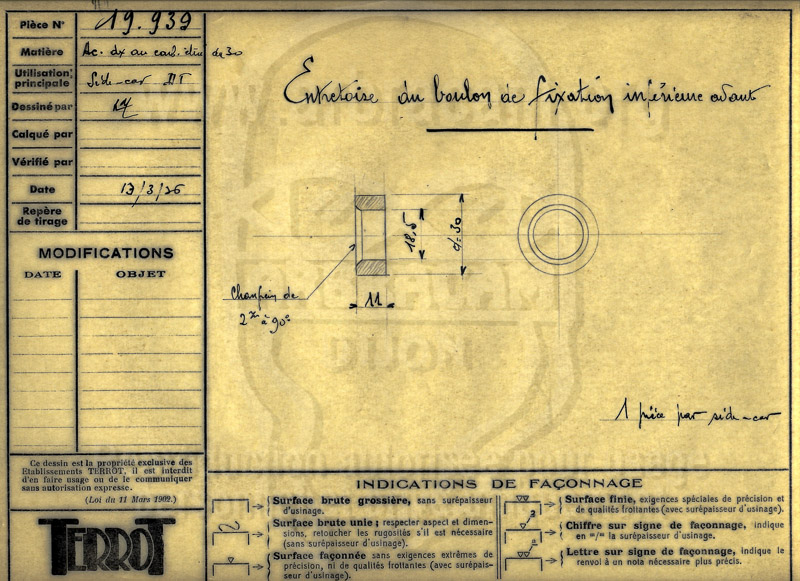 Pièce N° 19.939
Matière Ac. dx au carb. étiré de 30
Utilisation principale Side-car DT
Dessiné par
Calqué par
Vérifié par
Date 13/3/36
Repère de tirage
MODIFICATIONS
DATE OBJET
Ce dessin est la propriété exclusive des
Etablissements TERROT, il est interdit
d'en faire usage ou de le communiquer
sans autorisation expresse.
(Loi du 11 Mars 1902.)
TERROT
Entretoise du boulon de fixation inférieure avant
18,5
d=30
11
Chanfrein de
2 m à 90°
1 pièce par side-car
DIJON
INDICATIONS DE FAÇONNAGE
Surface brute grossière, sans surépaisseur
d'usinage.
Surface brute unie ; respecter aspect et dimen-
sions, retoucher les rugosités s'il est nécessaire
(sans surépaisseur d'usinage).
Surface façonnée sans exigences extrêmes de
précision, ni de qualités frottantes (avec surépais-
seur d'usinage).
Surface finie, exigences spéciales de précision et
de qualités frottantes (avec surépaisseur d'usinage).
Chiffre sur signe de façonnage, indique
en "/" la surépaisseur d'usinage.
Lettre sur signe de façonnage, indique le
renvoi à un nota nécessaire plus précis.